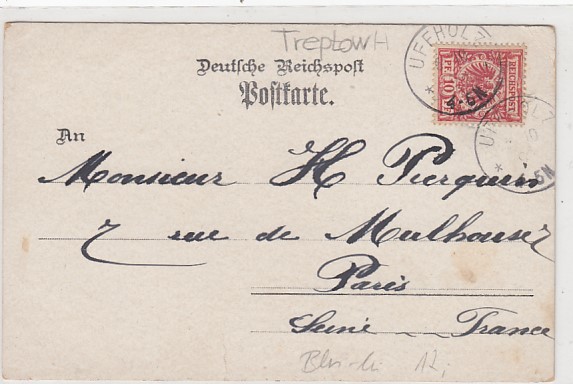 Treptow H
UFFHOLZ
Deutsche Reichspost
Postkarte.
REICHSPOST
PF. 10 PF.
UFFHOLZ
An
Monsieur H Pierquin
7 rue de Mulhouse
Paris
Seine France
12,